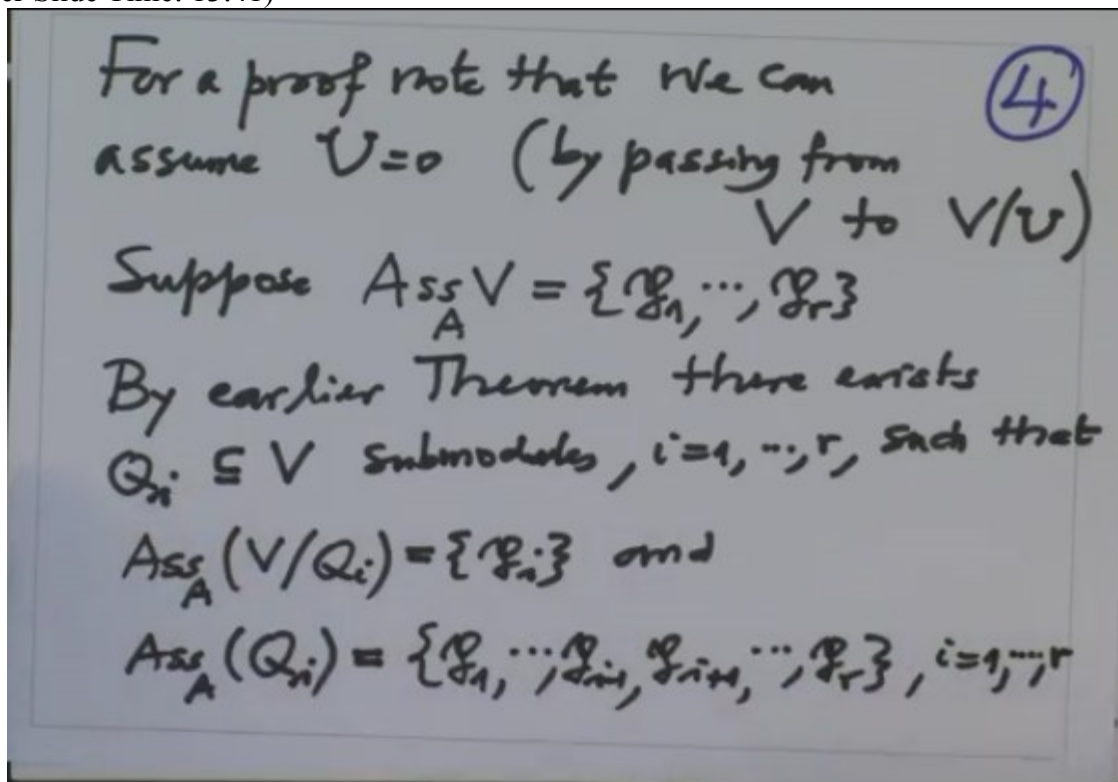 For a proof note that we can
④
assume U=0 (by passing from
V to V/U)
Suppose Ass_A V = {𝔭_1, ..., 𝔭_r}
By earlier Theorem there exists
Q_i ⊆ V submodules, i=1, ..., r, such that
Ass_A (V/Q_i) = {𝔭_i} and
Ass_A (Q_i) = {𝔭_1, ..., 𝔭_{i-1}, 𝔭_{i+1}, ..., 𝔭_r}, i=1, ..., r